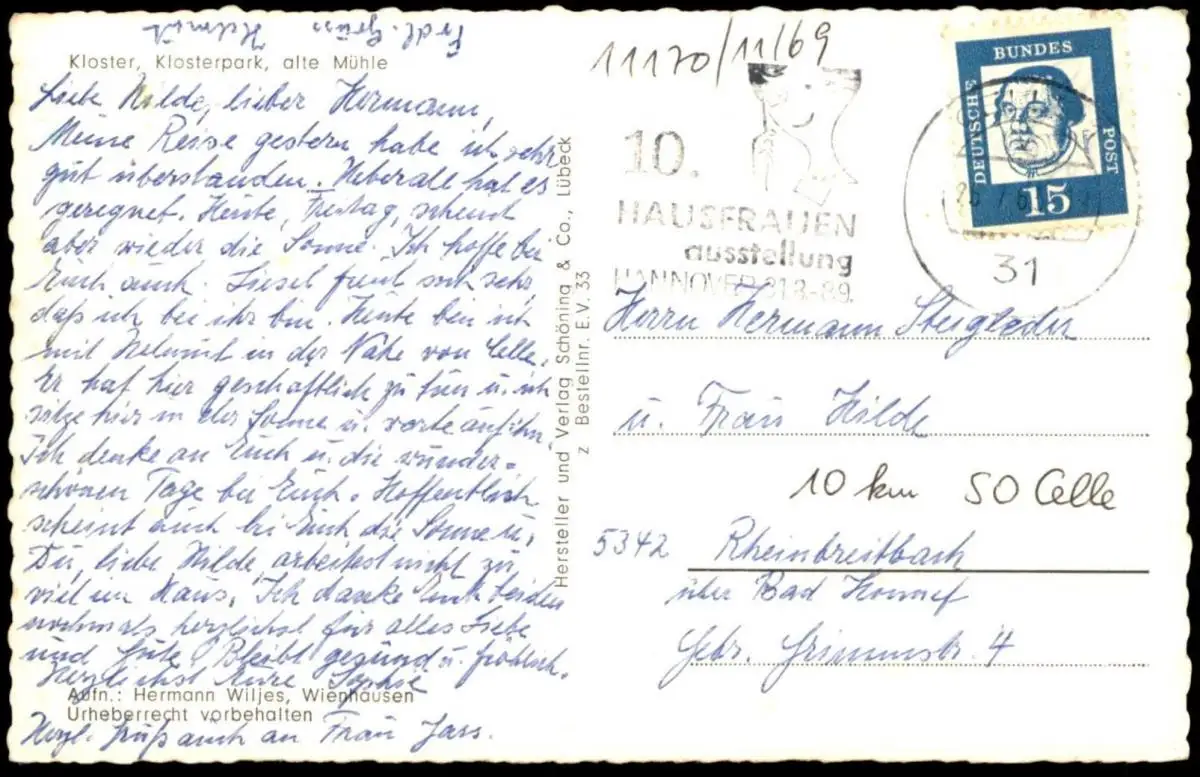 Frdl. Grüße
Helmut
Kloster, Klosterpark, alte Mühle
Liebe Hilde, lieber Hermann,
Meine Reise gestern habe ich sehr
gut überstanden. Ueberall hat es
geregnet. Heute, Freitag, scheint
aber wieder die Sonne. Ich hoffe bei
Euch auch. Liesel freut sich sehr,
daß ich bei ihr bin. Heute bin ich
mit Helmut in der Nähe von Celle.
Er hat hier geschäftlich zu tun u. ich
sitze hier in der Sonne u. warte auf ihn.
Ich denke an Euch u. die wunder-
schönen Tage bei Euch. Hoffentlich
scheint auch bei Euch die Sonne u.
Du, liebe Hilde, arbeitest nicht zu
viel im Haus. Ich danke Euch beiden
nochmals herzlichst für alles Liebe
und Gute. Bleibt gesund u. fröhlich.
Herzlichst Eure Sophie
Aufn.: Hermann Wiljes, Wienhausen
Urheberrecht vorbehalten
Herzl. Gruß auch an Frau Jass.
Hersteller und Verlag Schöning & Co., Lübeck
z Bestellnr. E.V. 33
11170/11/69
10.
HAUSFRAUEN
ausstellung
HANNOVER 31.8.-8.9.
DEUTSCHE BUNDES POST
15
31
Herrn Hermann Steigleder
u. Frau Hilde
10 km SO Celle
5342 Rheinbreitbach
über Bad Honnef
Gebr. Grimmstr. 4